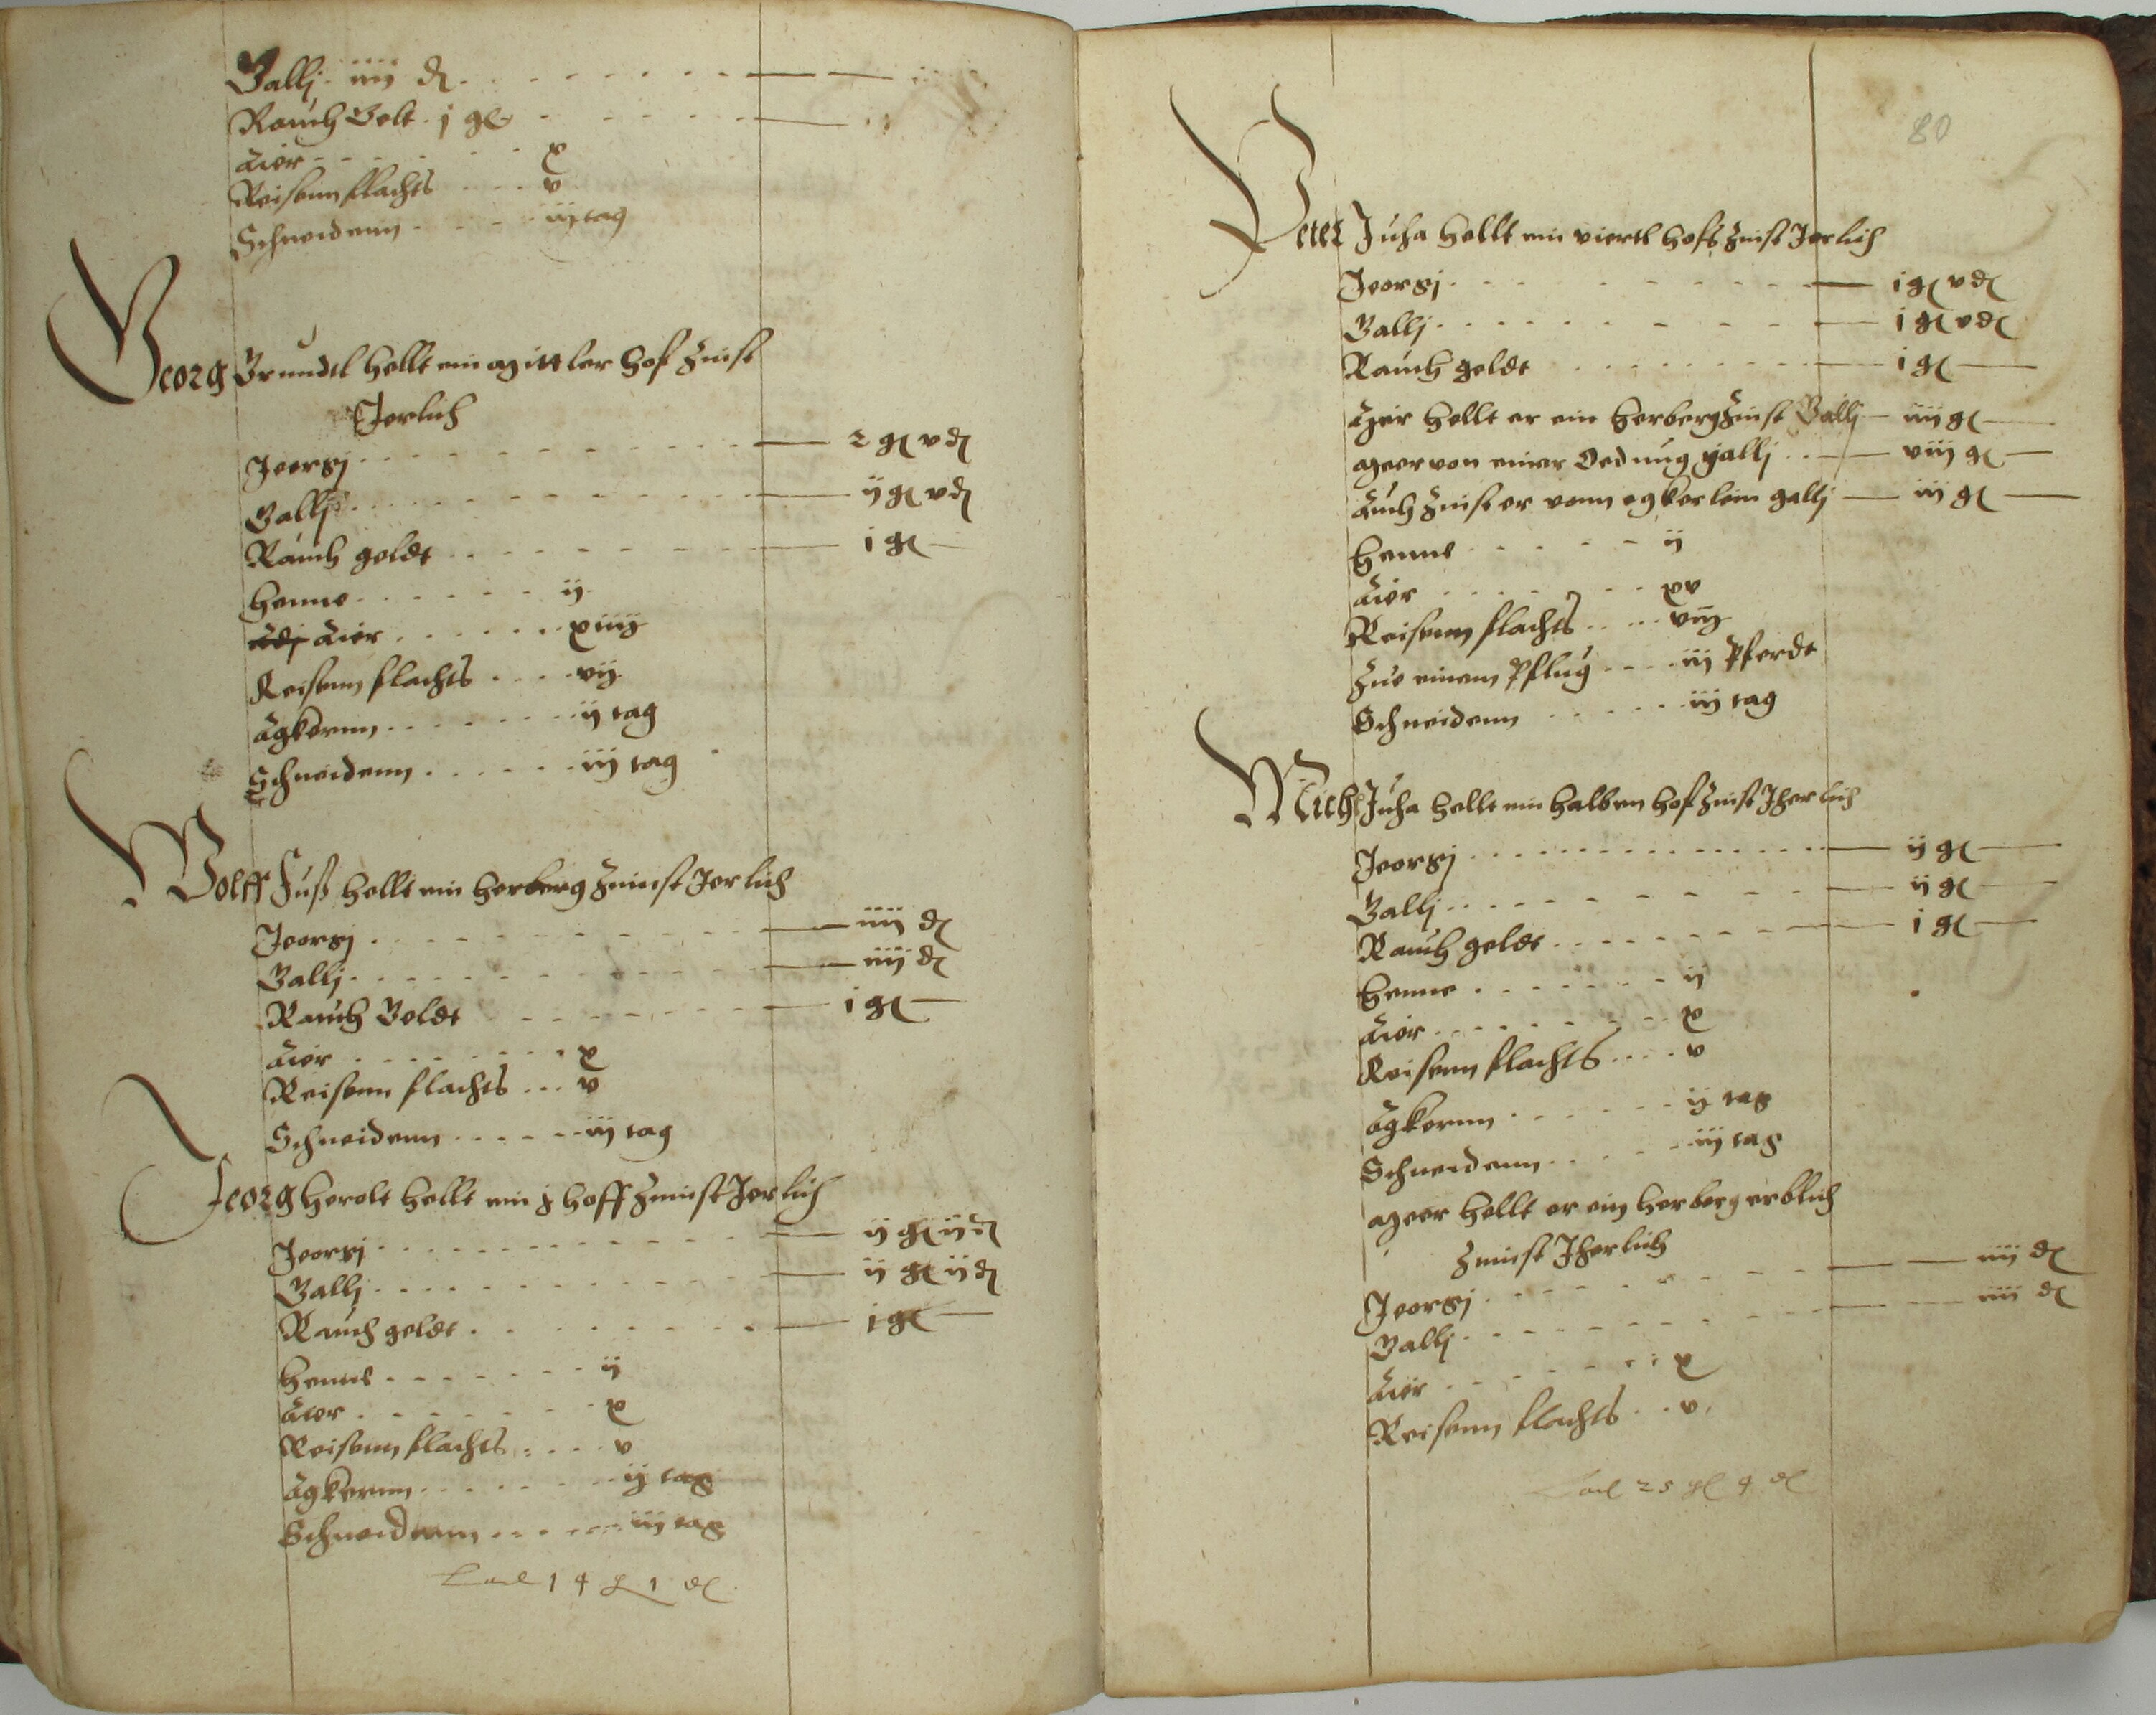 Gallj iiij d
Rauch Gelt j gl
Aier x
Reisenn flachs v
Schneidenn iij tag
Georg Gründtl hellt ein Mittler hof Zinst
Jerlich
Jeorgj 2 gl v d
Gallj ij gl v d
Rauch geldt i gl
Henne ij
Aier xiiij
Reisenn flachs vij
Agkernn ij tag
Schneidenn iij tag
Wolff Fuß hellt ein Herberg Zinnst Jerlich
Jeorgj iiij d
Gallj iiij d
Rauch Geldt i gl
Aier x
Reisenn flachs v
Schneidenn iij tag
Jeorg Herolt hellt ein hoff Zinnst Jerlich
Jeorgj ij gl ij d
Gallj ij gl ij d
Rauch geldt i gl
Henne ij
Aier x
Reisenn flachs v
Agkernn ij tag
Schneidenn iij tag
14 gl 1 d
80
Peter Juha hellt ein viertl hofs Zinst Jerlich
Jeorgj i gl v d
Gallj i gl v d
Rauch geldt i gl
Mehr hellt er ein Herberg Zinst Gallj iiij gl
Meer von einer Oednüg gallj viij gl
Auch Zinst er vonn egkerlein gallj iij gl
Henne ij
Aier xv
Reisenn flachs viij
Zue einem Pflug iij Pferdt
Schneidenn iij tag
Michl Juha hellt ein halben hof Zinst Jherlich
Jeorgj ij gl
Gallj ij gl
Rauch geldt i gl
Henne ij
Aier x
Reisenn flachs v
Agkernn ij tag
Schneidenn iij tag
Meer hellt er ein Herberg erblich
Zinnst Jherlich
Jeorgj iiij d
Gallj iiij d
Aier x
Reisenn flachs v
25 gl 4 d